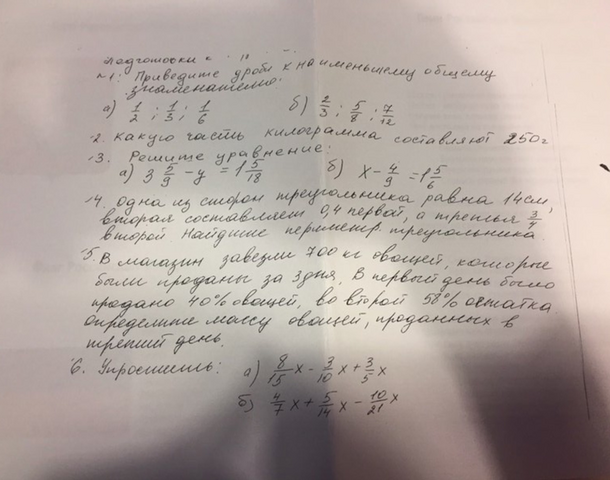 Подготовки к
№1. Приведите дроби к наименьшему общему
знаменателю:
а) 1/2 ; 1/3 ; 1/6 б) 2/3 ; 5/8 ; 7/12
2. Какую часть килограмма составляют 250г
3. Решите уравнение:
а) 3 5/9 - y = 1 5/18 б) x - 4/9 = 1 5/6
4. Одна из сторон треугольника равна 14см,
вторая составляет 0,4 первой, а третья 3/4
второй. Найдите периметр треугольника.
5. В магазин завезли 700 кг овощей, которые
были проданы за 3 дня. В первый день было
продано 40% овощей, во второй 58% остатка.
Определите массу овощей, проданных в
третий день.
6. Упростить: а) 8/15 x - 3/10 x + 3/5 x
б) 4/7 x + 5/14 x - 10/21 x